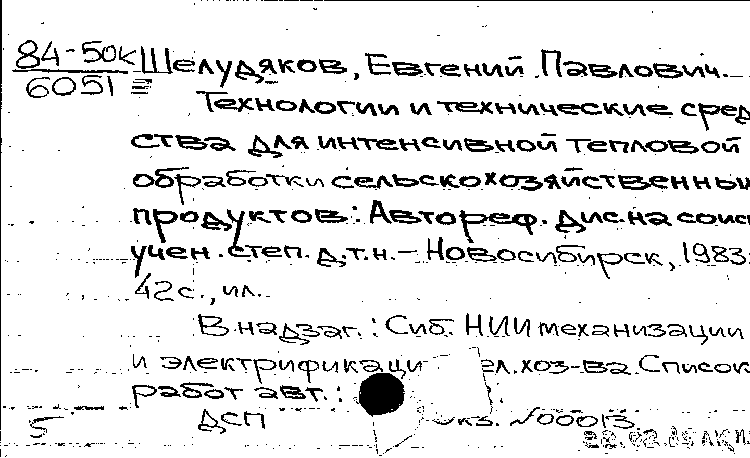 84-50к Шелудяков, Евгений Павлович.
6051 ≡
Технологии и технические сред
ства для интенсивной тепловой
обработки сельскохозяйственны
продуктов: Автореф. дис. на соис
учен. степ. д.т.н. – Новосибирск, 1983.
42 с., ил.
В надзаг.: Сиб. НИИ механизации
и электрификаци ел. хоз-ва. Список
работ авт.:
5 ДСП экз. №00013.